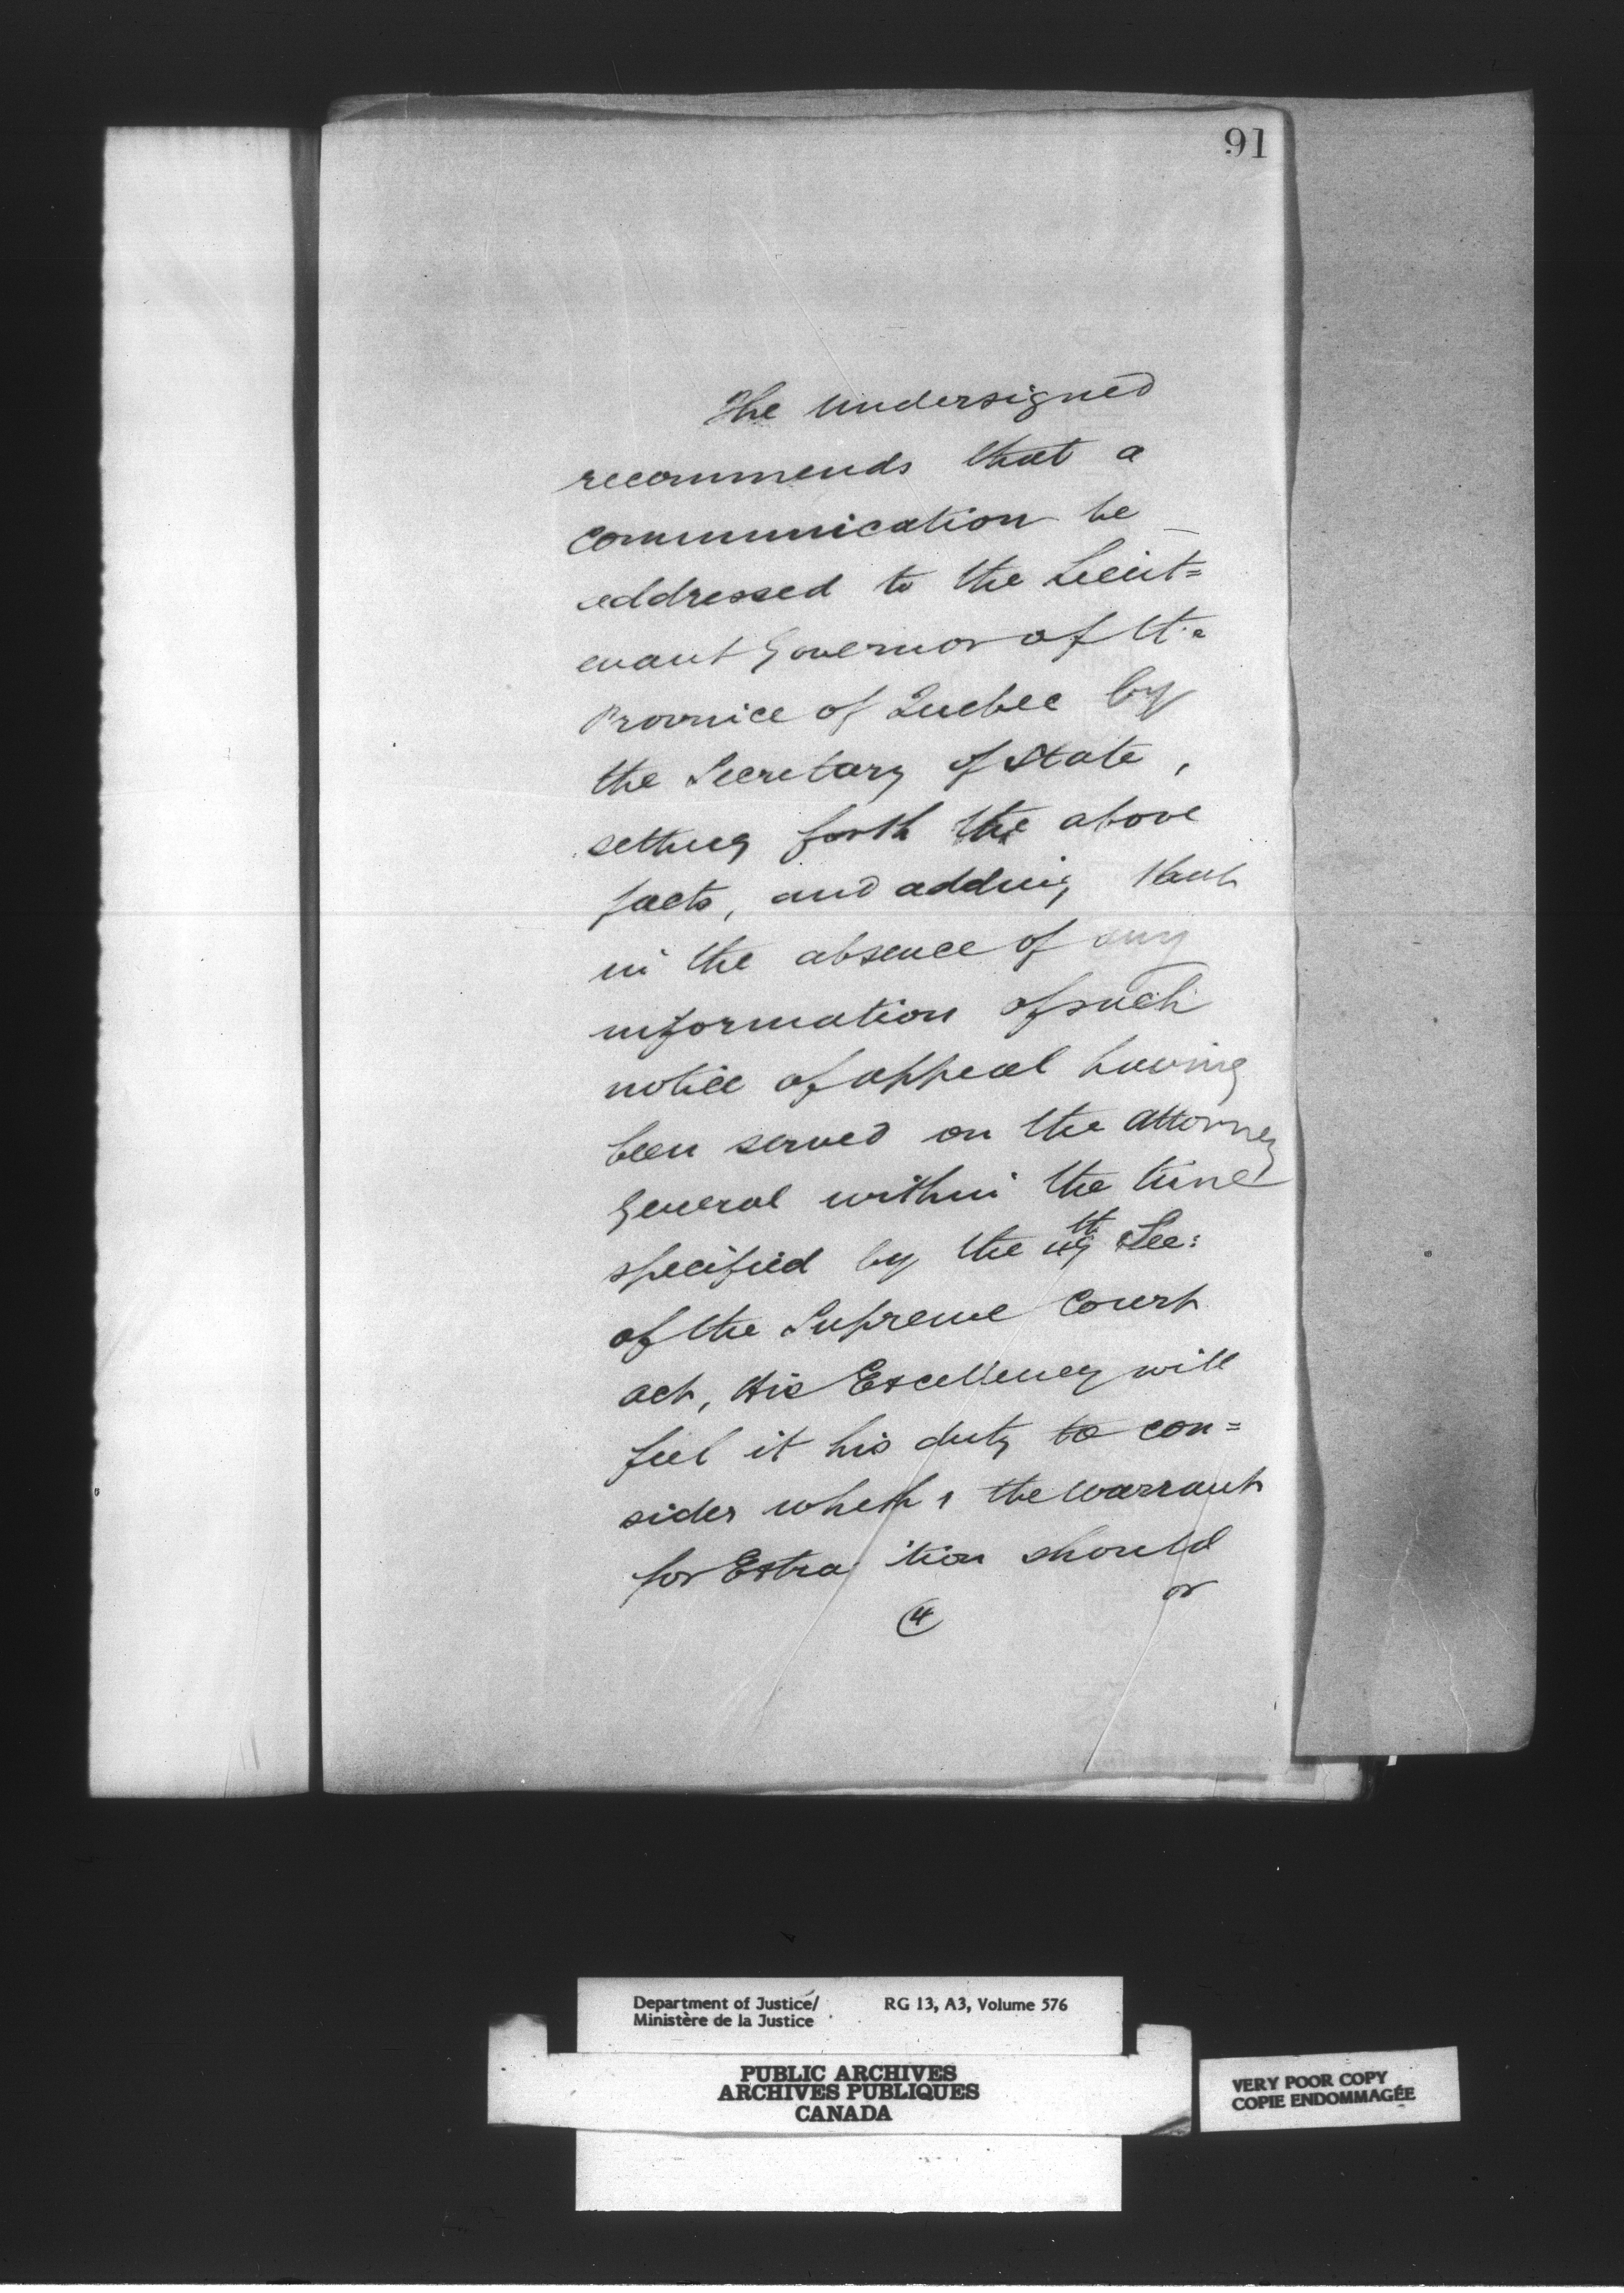 91
The undersigned
recommends that a
communication be
addressed to the Lieut=
enant Governor of the
Province of Quebec by
the Secretary of State,
setting forth the above
facts, and adding that
in the absence of any
information of such
notice of appeal having
been served on the Attorney
General within the time
specified by the 49th Sec:
of the Supreme Court
act, His Excellency will
feel it his duty to con=
sider whether the warrant
for Extradition should
or
4
Department of Justice/ RG 13, A3, Volume 576
Ministère de la Justice
PUBLIC ARCHIVES
ARCHIVES PUBLIQUES
CANADA
VERY POOR COPY
COPIE ENDOMMAGÉE